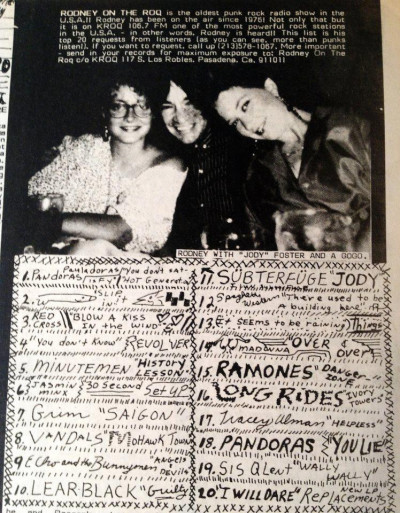 RODNEY ON THE ROQ is the oldest punk rock radio show in the
U.S.A.!! Rodney has been on the air since 1976! Not only that but
it is on KROQ 106.7 FM one of the most powerful rock stations
in the U.S.A. - in other words, Rodney is heard!! This list is his
top 20 requests from listeners (as you can see, more than punks
listen!). If you want to request, call up (213)578-1067. More important
- send in your records for maximum exposure to: Rodney On The
Roq c/o KROQ 117 S. Los Robles, Pasadena, Ca. 91101!
RODNEY WITH "JODY" FOSTER AND A GOGO.
1. PANDORAS "You don't
Hot Generation
2.
SLIP
3. RED CROSS "BLOW A KISS
IN the WINd"
4. "You don't Know" REVOLVER
5. MINUTEMEN HISTORY
LESSON
6. JASMIN minx 30 Second Set UP
7. Grim "SAIGON"
8. VANDALS "MOHAWK TOWN
9. Echo and the Bunnymen "ANGELS
DEVILS
10. LEAR BLACK "Guilty
11. SUBTERFUGE "JODY"
12. Spaghetti Western "There used to be
a building here"
13. E+ SEEMS to be raining Things
14. MADONNA OVER &
OVER
15. RAMONES "DANGER
ZONE
16. LONG RIDES "Ivory
Towers
Tracey Ulman "HELPLESS"
18. PANDORAS YOU LIE
19. SIS Q Lent "WALLY
WALLY"
20. "I WILL DARE" Replacements
NEW LP